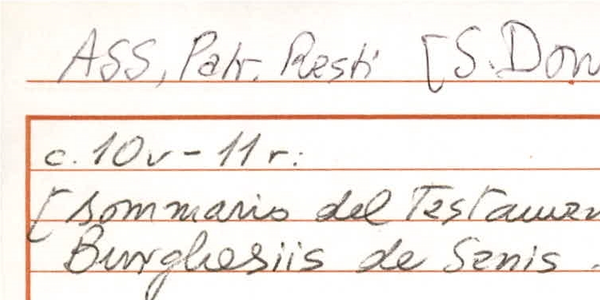 ASS, Patr. Resti [S. Dom
c. 10v - 11r:
[sommario del Testamen
Burghesiis de Senis